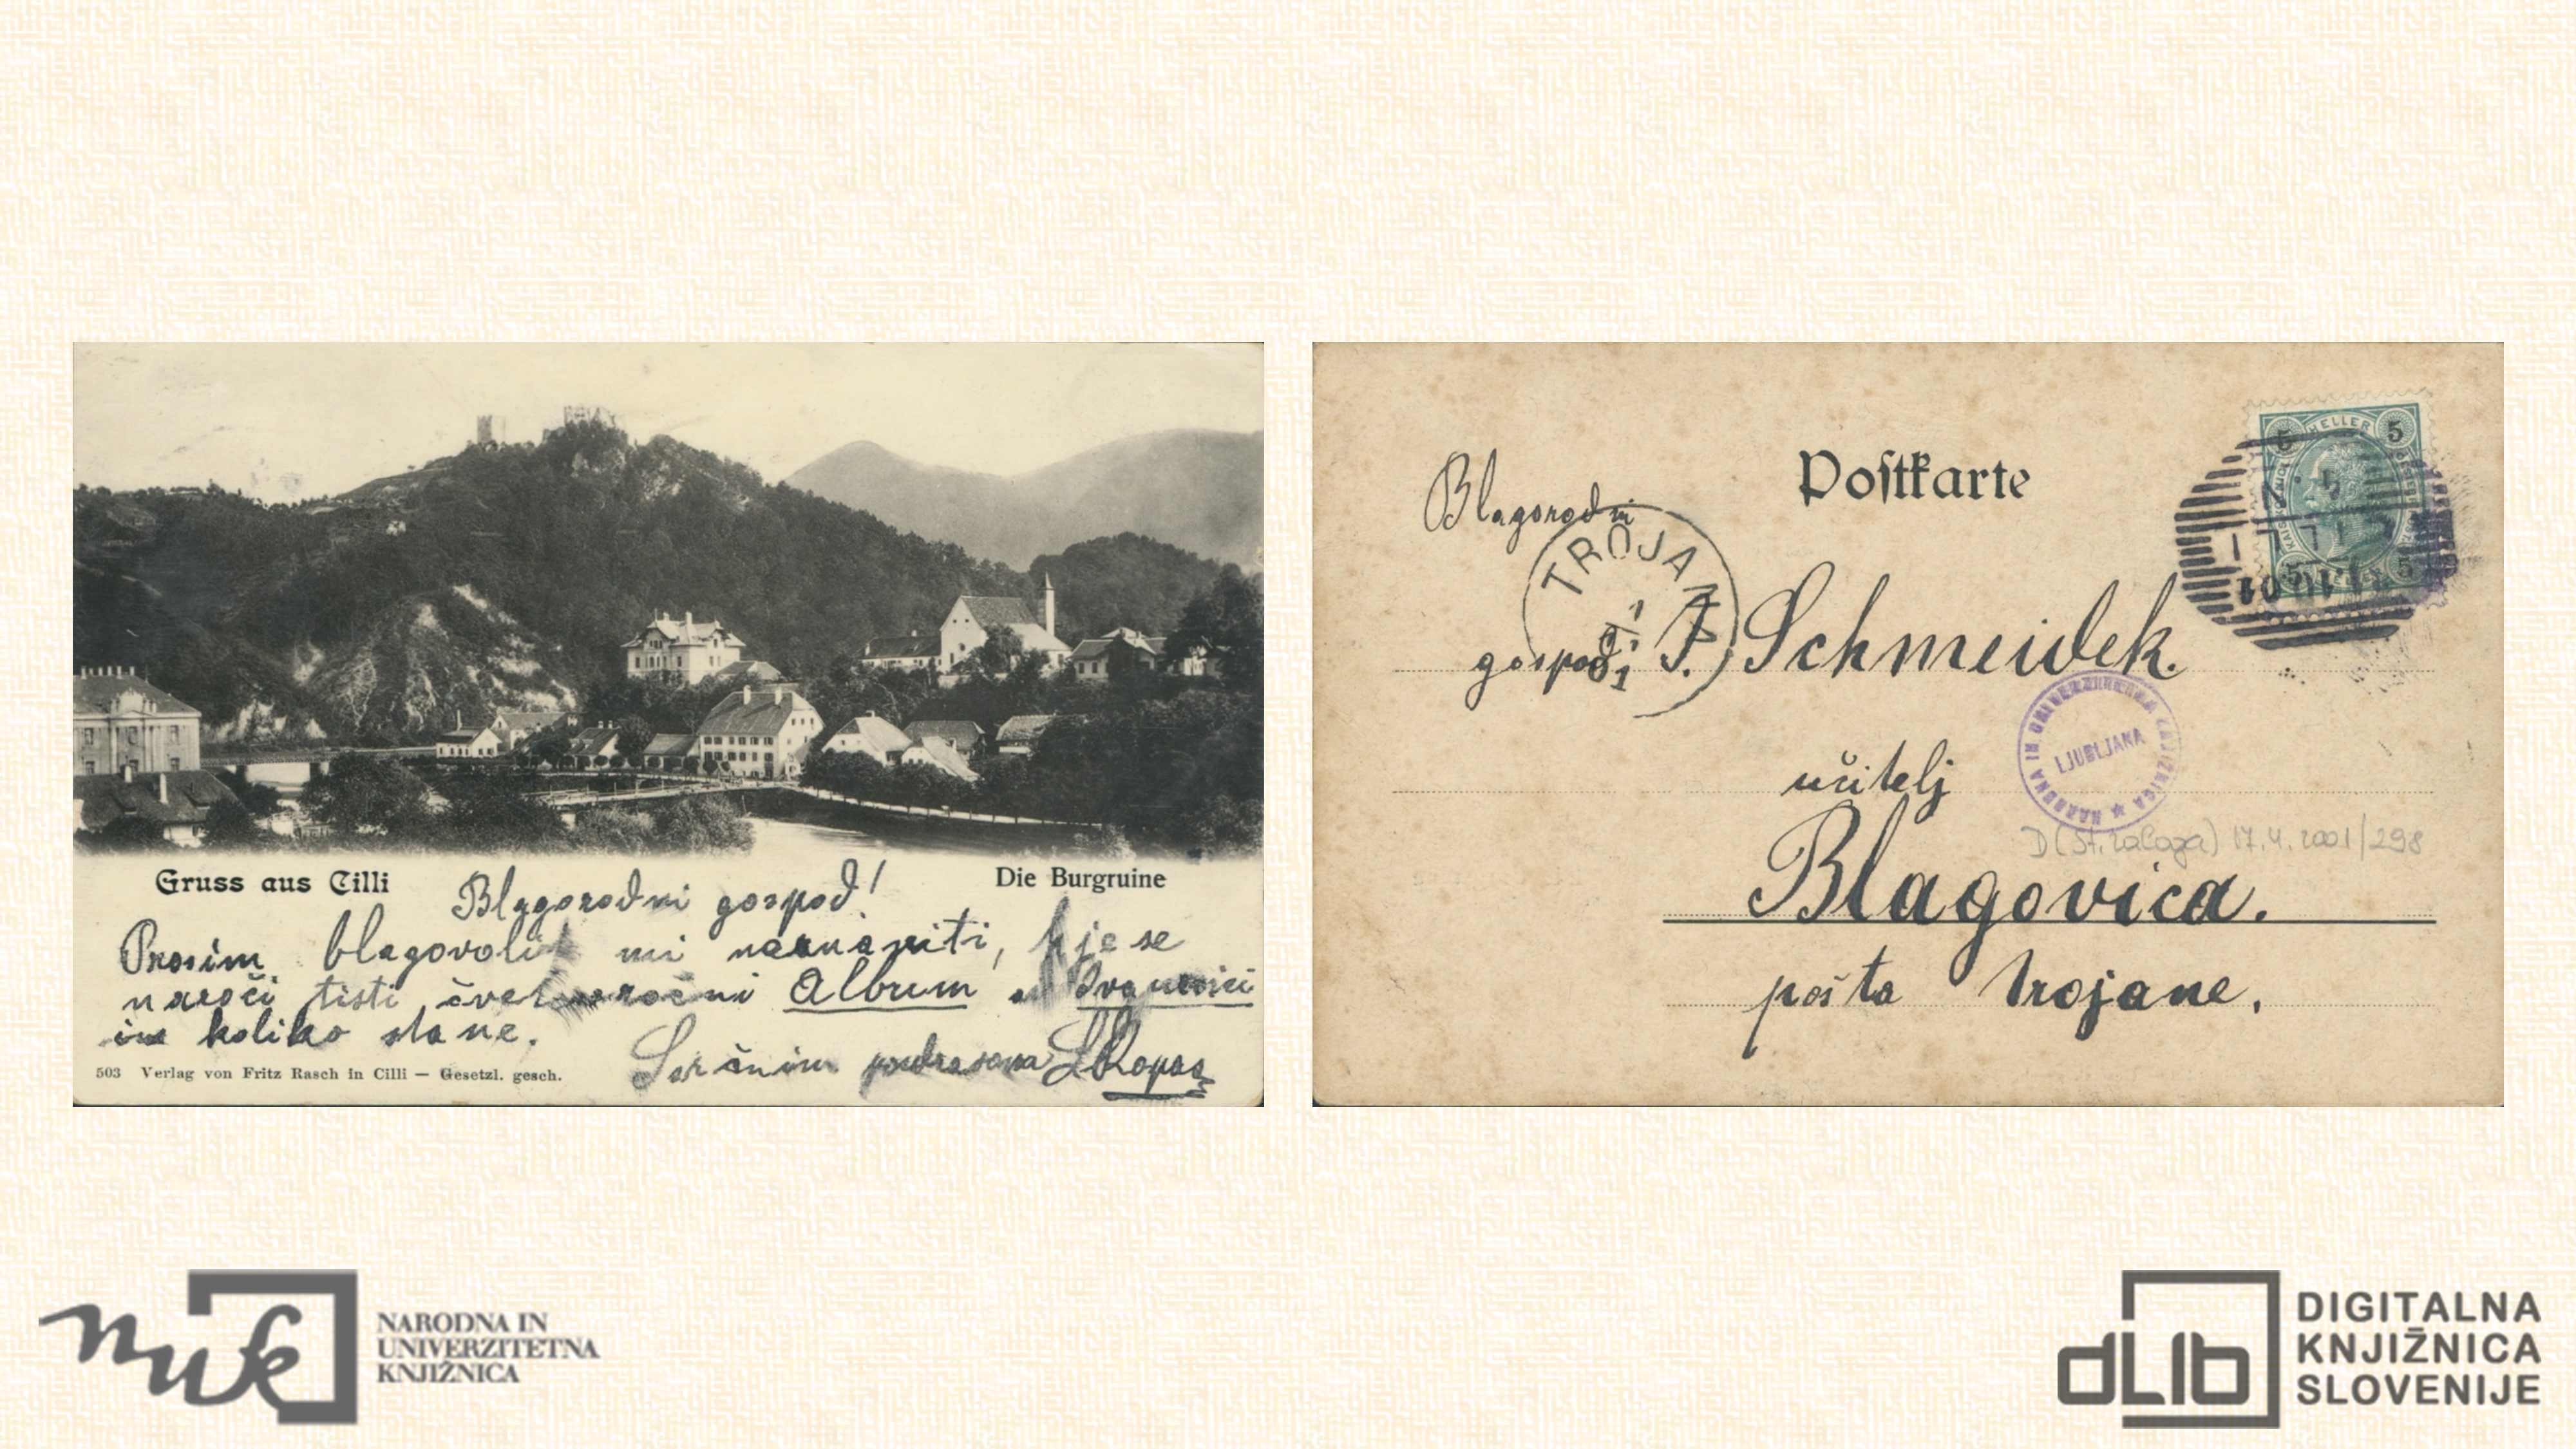 Gruss aus Cilli
Die Burgruine
Blagorodni gospod!
Prosim blagovolite mi naznaniti, kje se
naroči tisti čveteroročni Album
in koliko stane.
Srčnim pozdravom
503 Verlag von Fritz Rasch in Cilli — Gesetzl. gesch.
Postkarte
Blagorodni
TROJANA
gospod J. Schmeidek.
učitelj
Blagovica.
pošta Trojane.
HELLER
5 5
5 5
NARODNA IN UNIVERZITETNA KNJIŽNICA
LJUBLJANA
D (St. zaloga) 17.4.2001/298
nuk
NARODNA IN
UNIVERZITETNA
KNJIŽNICA
dLIb
DIGITALNA
KNJIŽNICA
SLOVENIJE